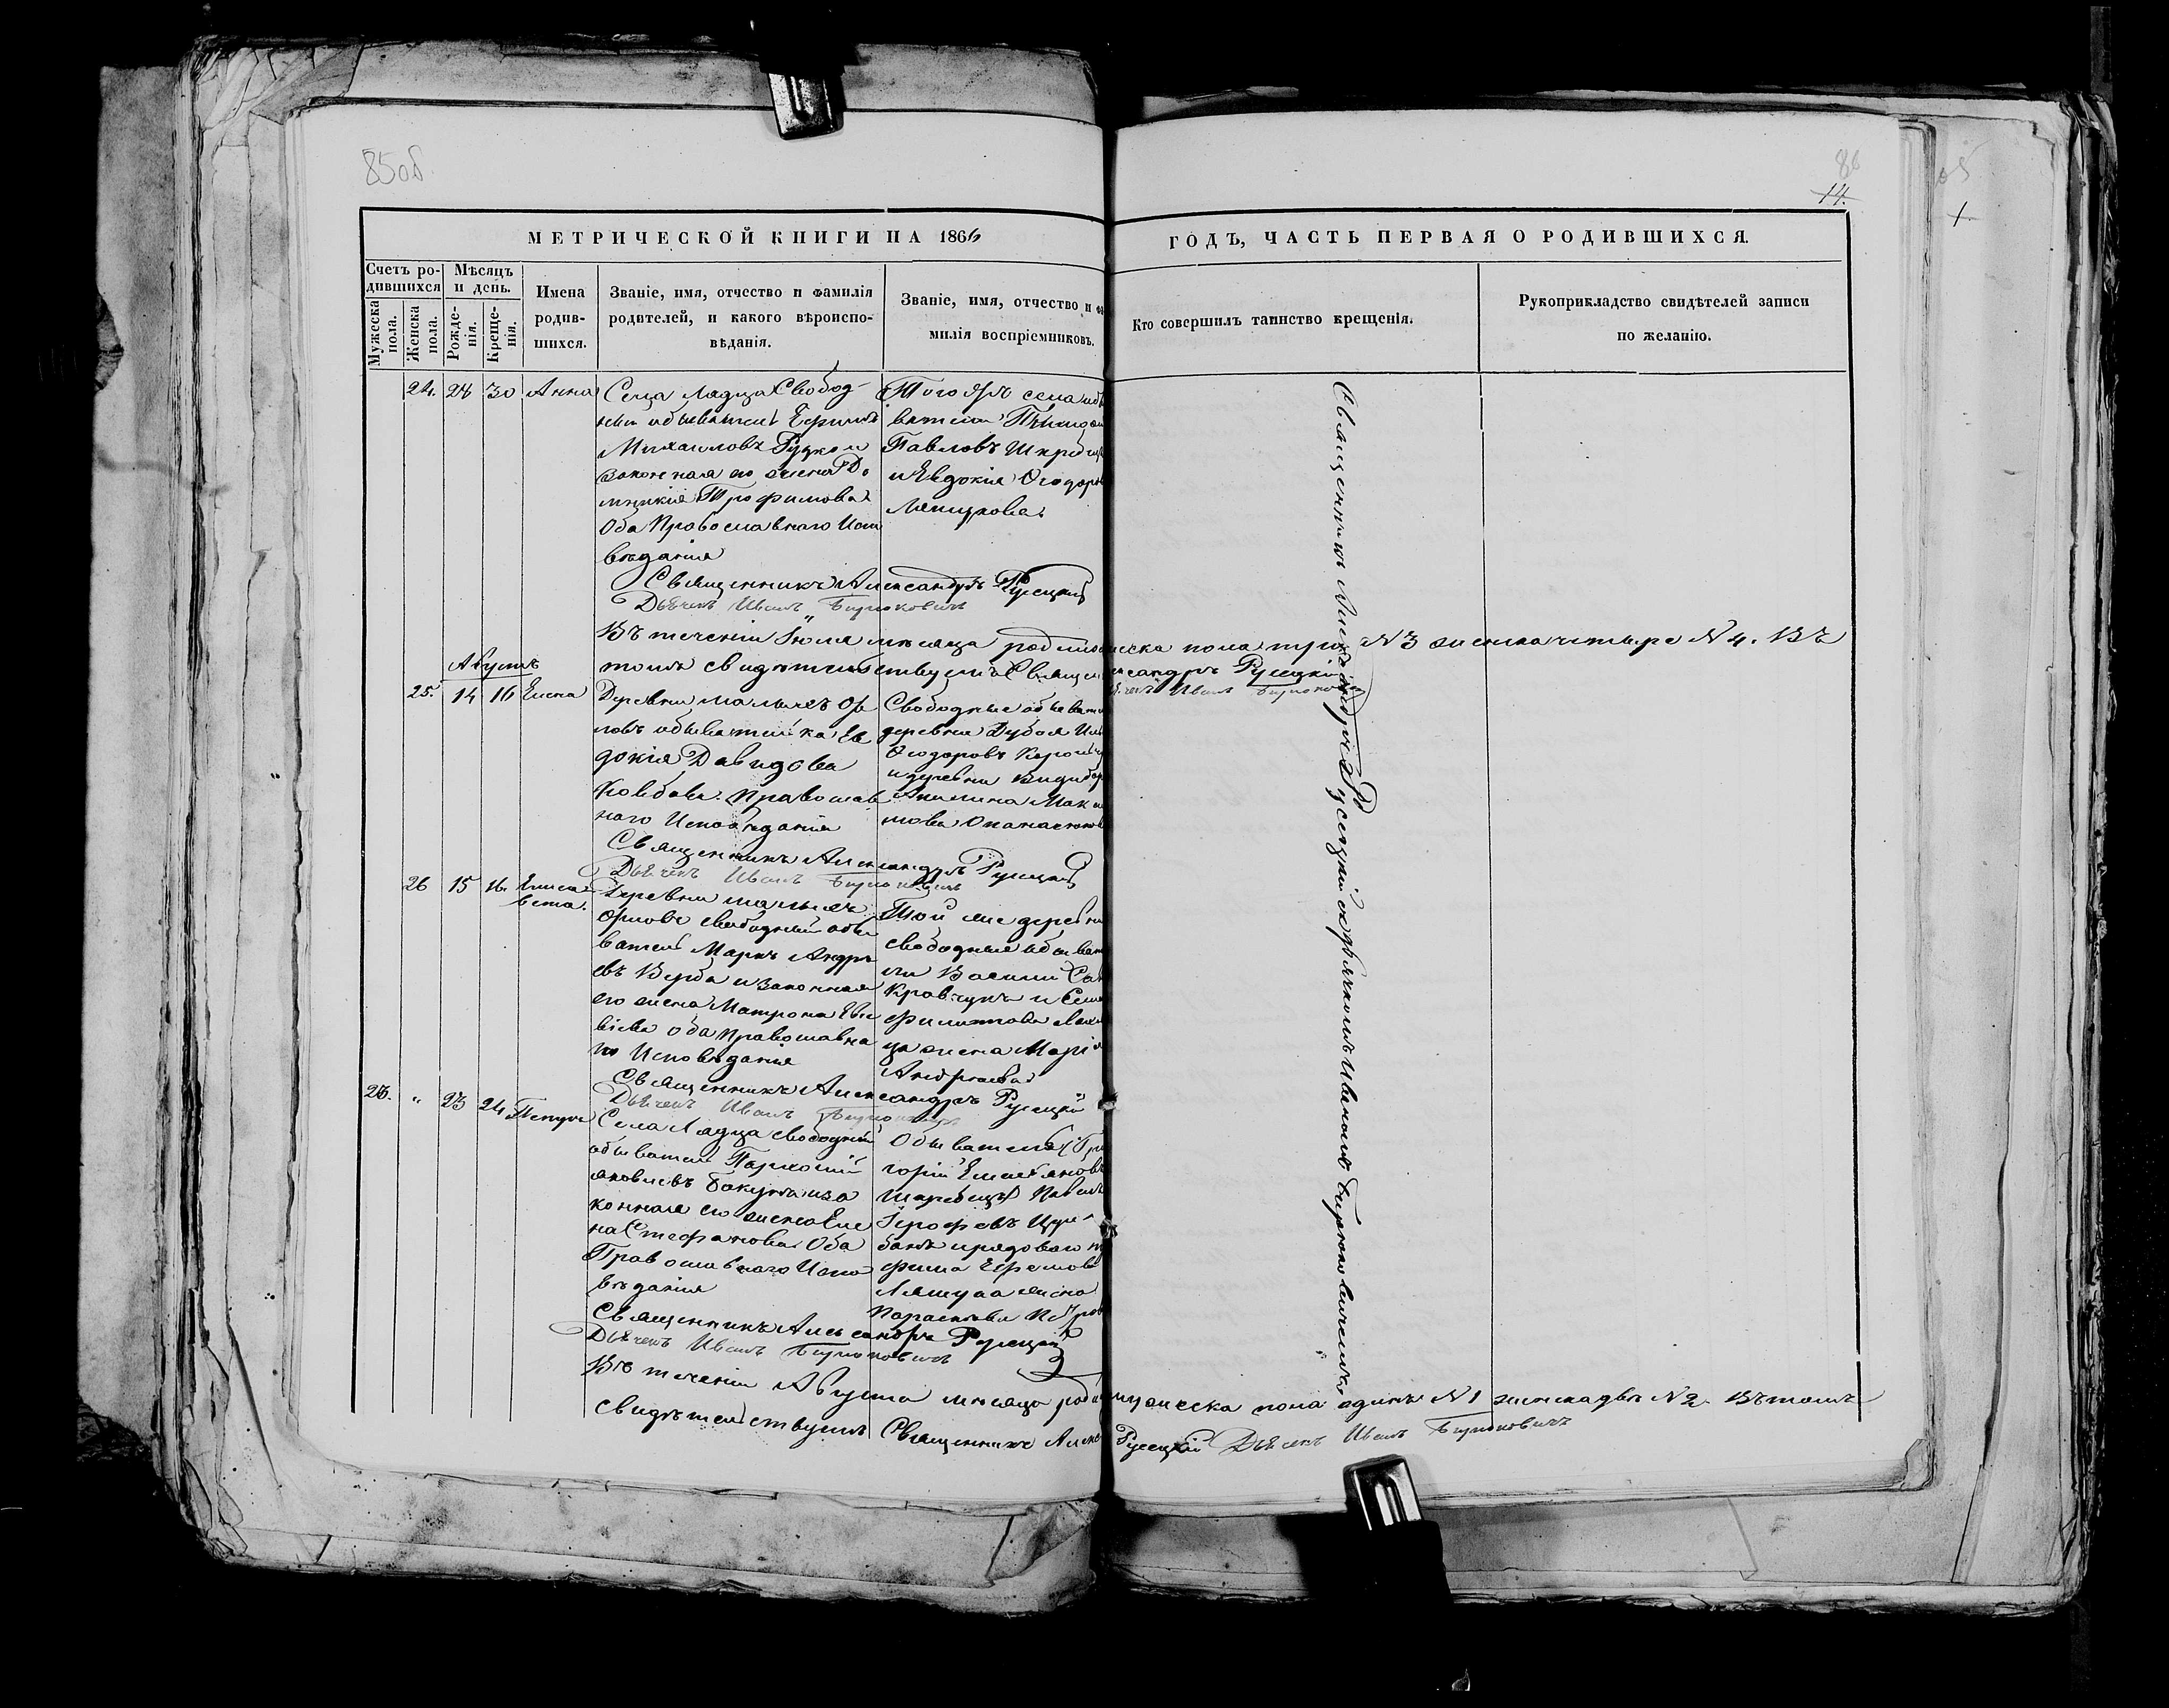 85об
14.
МЕТРИЧЕСКОЙ КНИГИ НА 1866
ГОДЪ, ЧАСТЬ ПЕРВАЯ О РОДИВШИХСЯ.
Счетъ ро-
дившихся
Мужеска
пола.
Женска
пола.
Мѣсяцъ
и день.
Рожде-
нія.
Креще-
нія.
Имена
родив-
шихся.
Званіе, имя, отчество и фамилія
родителей, и какого вѣроиспо-
вѣданія.
Званіе, имя, отчество и фа
милія воспріемниковъ.
Кто совершилъ таинство крещенія.
Рукоприкладство свидѣтелей записи
по желанію.
24. 24 30 Анна
Села Лядца Свобод-
ный обыватель Ефимъ
Михаиловъ Рудко и
законная его жена До
мникія Трофимова
Оба Православнаго Испо
вѣданія
Тогоже села обы
ватели
Павловъ
и Евдокія Ѳеодоров
Священникъ Александръ Русецкій
Дьячекъ Иванъ Бирюковичъ
Въ теченіи Іюля мѣсяца родилось
жеска пола три N3 женска четыре N4. Въ
томъ свидѣтельствуетъ Священ
ксандръ Русецкій
Дьячекъ Иванъ Бирюкови
Августъ
25. 14 16 Елена
Деревни Малыхъ Ор
ловъ обывателька Ев
докія Давидова
Ковбова. Православ
наго Исповѣданія
Свободные обывате
деревни Дубоя
Ѳеодоровъ
и деревни Видибор
Акилина Макси
мова
Священникъ Александръ Русецкій
Дьячекъ Иванъ Бирюковичъ
26 15 16. Елиса-
вета.
Деревни Малыхъ
Орловъ свободный обы
ватель Маркъ Андре
евъ Верба и законная
его жена Матрона
оба Православна
го Исповѣданія
Той же деревни
свободные обывате
ли Василій
Кравчукъ и
Филиппова
ца жена Марія
Андреева
Священникъ Александръ Русецкій
Дьячекъ Иванъ Бирюковичъ
23 24
Села Лядца свободный
обыватель Пархомій
Яковлевъ Бакуна и за
конная его жена Еле
на Стефанова Оба
Православнаго Испо
вѣданія
Обыватель Гри
горій Емельяновъ
фима Ефремова
жена
Параскева Петров
Священникъ Александръ Русецкій
Дьячекъ Иванъ Бирюковичъ
Въ теченіи Августа мѣсяца роди
мужеска пола одинъ N1 женска двѣ N2. Въ томъ
свидѣтельствуетъ Священникъ Алек
Русецкій Дьячекъ Иванъ Бирюковичъ
Священникъ Александръ Русецкій съ дьячкомъ Иваномъ Бирюковичемъ